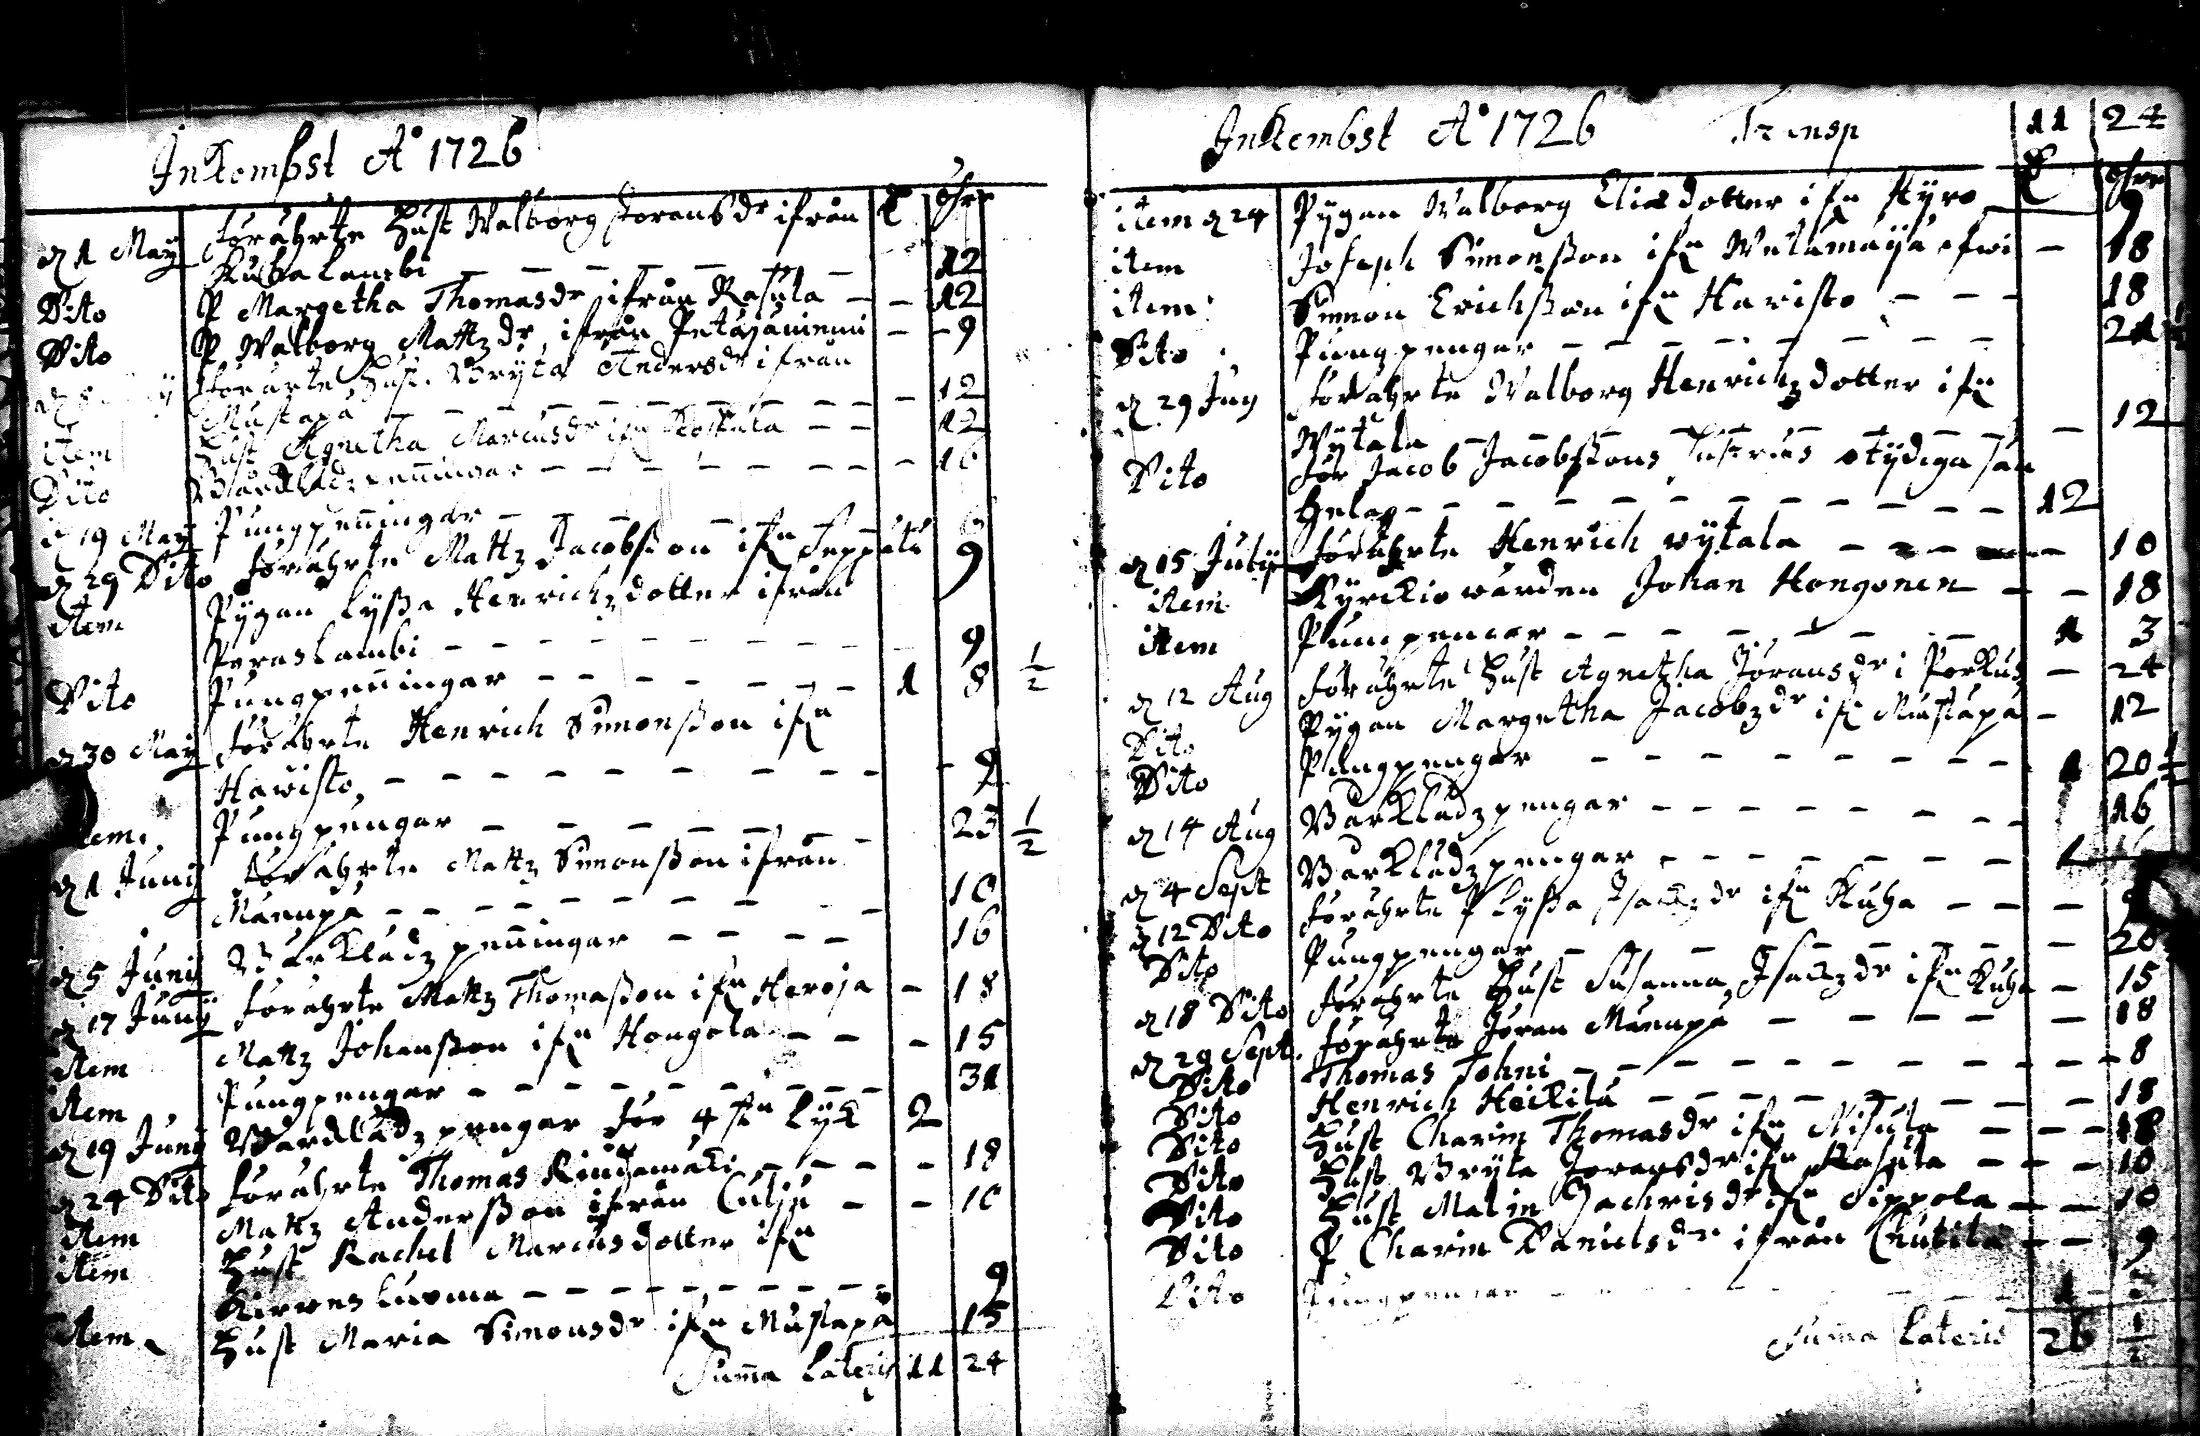 Inkombst A° 1726
d 1 May Förährte Hust Walborg Joransdr ifrån
Kuhalambi — — — — — 12
Dito P Margetha Thomasdr ifrån Rasula — — 12
Dito P Walborg Mattzdr ifrån Petäjäniemi — — 9
Förärte Hust. Bryta Andersdr ifrån
Mustapä — — — — — — 12
item Hust Agnetha Marcusdr ifn — — 12
Dito Bårklädz penningar — — — — — 16
d 19 May Pungpenningar — — — — 6
d 29 Dito Förährte Mattz Jacobsson ifrn Seppälä 9
Item Pygan Lyssa Henrichzdotter ifrån
Peraslambi — — — — — — — 9
Dito Pungpenningar — — — — — — 1 8 1/2
d 30 May Förährte Henrich Simonsson ifrn
Hawisto, — — — — — — — — 9
Item. Pungpengar — — — — — 23 1/2
d 1 Junij Förährte Mattz Simonsson ifrån
Mänupä — — — — — — — — 10
d 5 Junij Bårklädz penningar — — — — 16
d 17 Junij Förährte Mattz Thomasson ifn Heroja — 18
Item Mattz Johansson ifn Hongola — — — 15
Item Pungpengar — — — — — — — — 31
d 19 Junij Bårdklädz pengar för 4 st. Lyk 2
d 24 Dito Förährte Thomas Ringamäki — — — — 18
Item Mattz Andersson ifrån Culju — — 10
Item Hust Rachel Marcusdotter ifrn
Kirweskuoma — — — — — — — — 9
Item Hust Maria Simonsdr ifn Mustapä 15
Summa Lateris 11 24
Inkombst A° 1726 Transp 11 24
öhre
item d 24 Pygan Walborg Eliædotter ifn Kyrö 9
item Joseph Simonsson ifn — 18
item Simon Erichsson ifn Hawisto — — — 18
Dito Pungpengar — — — — — — — — 21 1/2
d 29 Junij Förährte Walborg Henrichzdotter ifn
Wytala — — — — — — 12
Dito För Jacob Jacobssons Hustrus otydiga sän
gelag — — — — — — — — — 12
d 15 Julij Förährte Henrich wytala — — — — 10
item Kyrckiowärden Johan Hongonen — — 18
item Pungpengar — — — — — — 1 3
d 12 Aug Förährte Hust Agnetha Joransdr i Porkus — 24
Dito Pygan Margetha Jacobzdr if Mustapä — 12
Dito Pungpengar — — — — — — — 1 20 1/2
d 14 Aug Bårklädz pengar — — — — — — — 16
d 4 Sept Bårklädz pengar — — — — — — —
d 12 Dito Förährte P Lyssa Isackzdr ifn Kuha — — — 9
Dito Pungpengar — — — — — — 20
d 18 Dito Förährte Hust Susanna Isackzdr ifn Kuha — 15
d 29 Sept. Förährte Jöran Mänupä — — — — — 18
Dito Thomas Tohni — — — — — — — — — 8
Dito Henrich Heickilä — — — — — — — — 18
Dito Hust Charin Thomasdr ifn Nisula — — — 18
Dito Hust Bryta Joransdr ifn Rasula — — — 10
Dito Hust Malin Zachrisdr ifn Sippola — — 10
Dito P Charin Danielsdr ifrån Cnutila — — 9
Dito Pungpengar — — — — 1
Summa Lateris 26 1/2